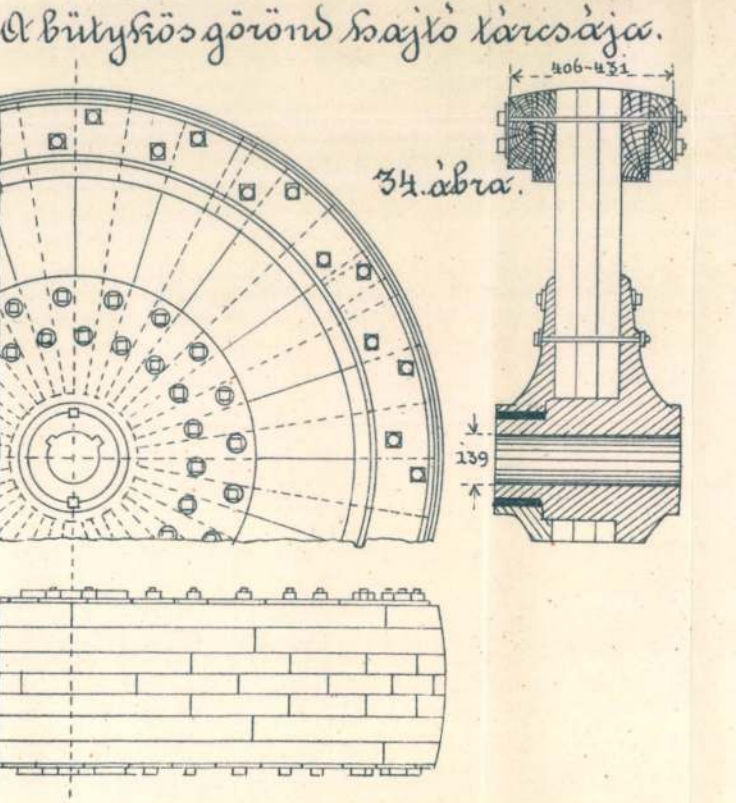 A bütykös görönd hajtó tárcsája.
406-431
34. ábra.
139